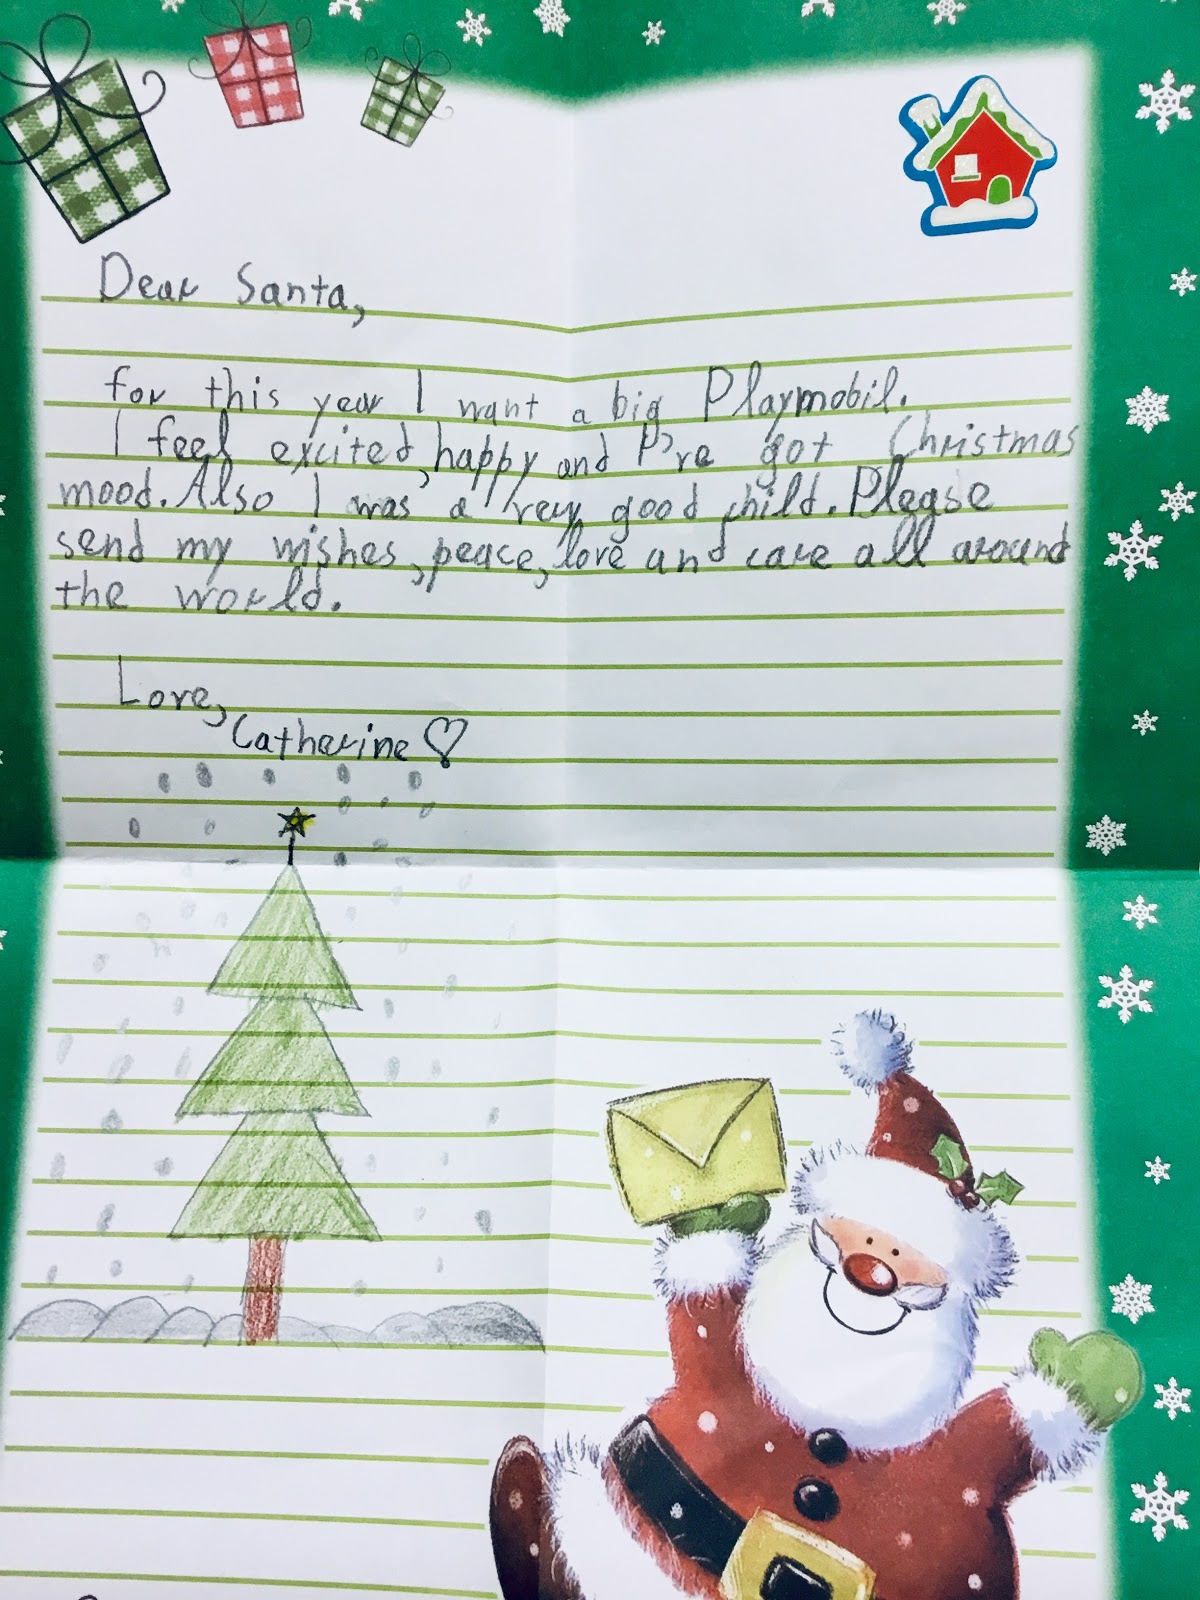 Dear Santa,
for this year I want a big Playmobil.
I feel excited, happy and I've got Christmas
mood. Also I was a very good child. Please
send my wishes, peace, love and care all around
the world.
Love,
Catherine ♡